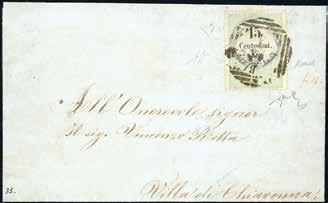 15
Centesimi.
All' Onorevole signor
Il sig. Vincenzo
Villa di Chiavenna.
35.